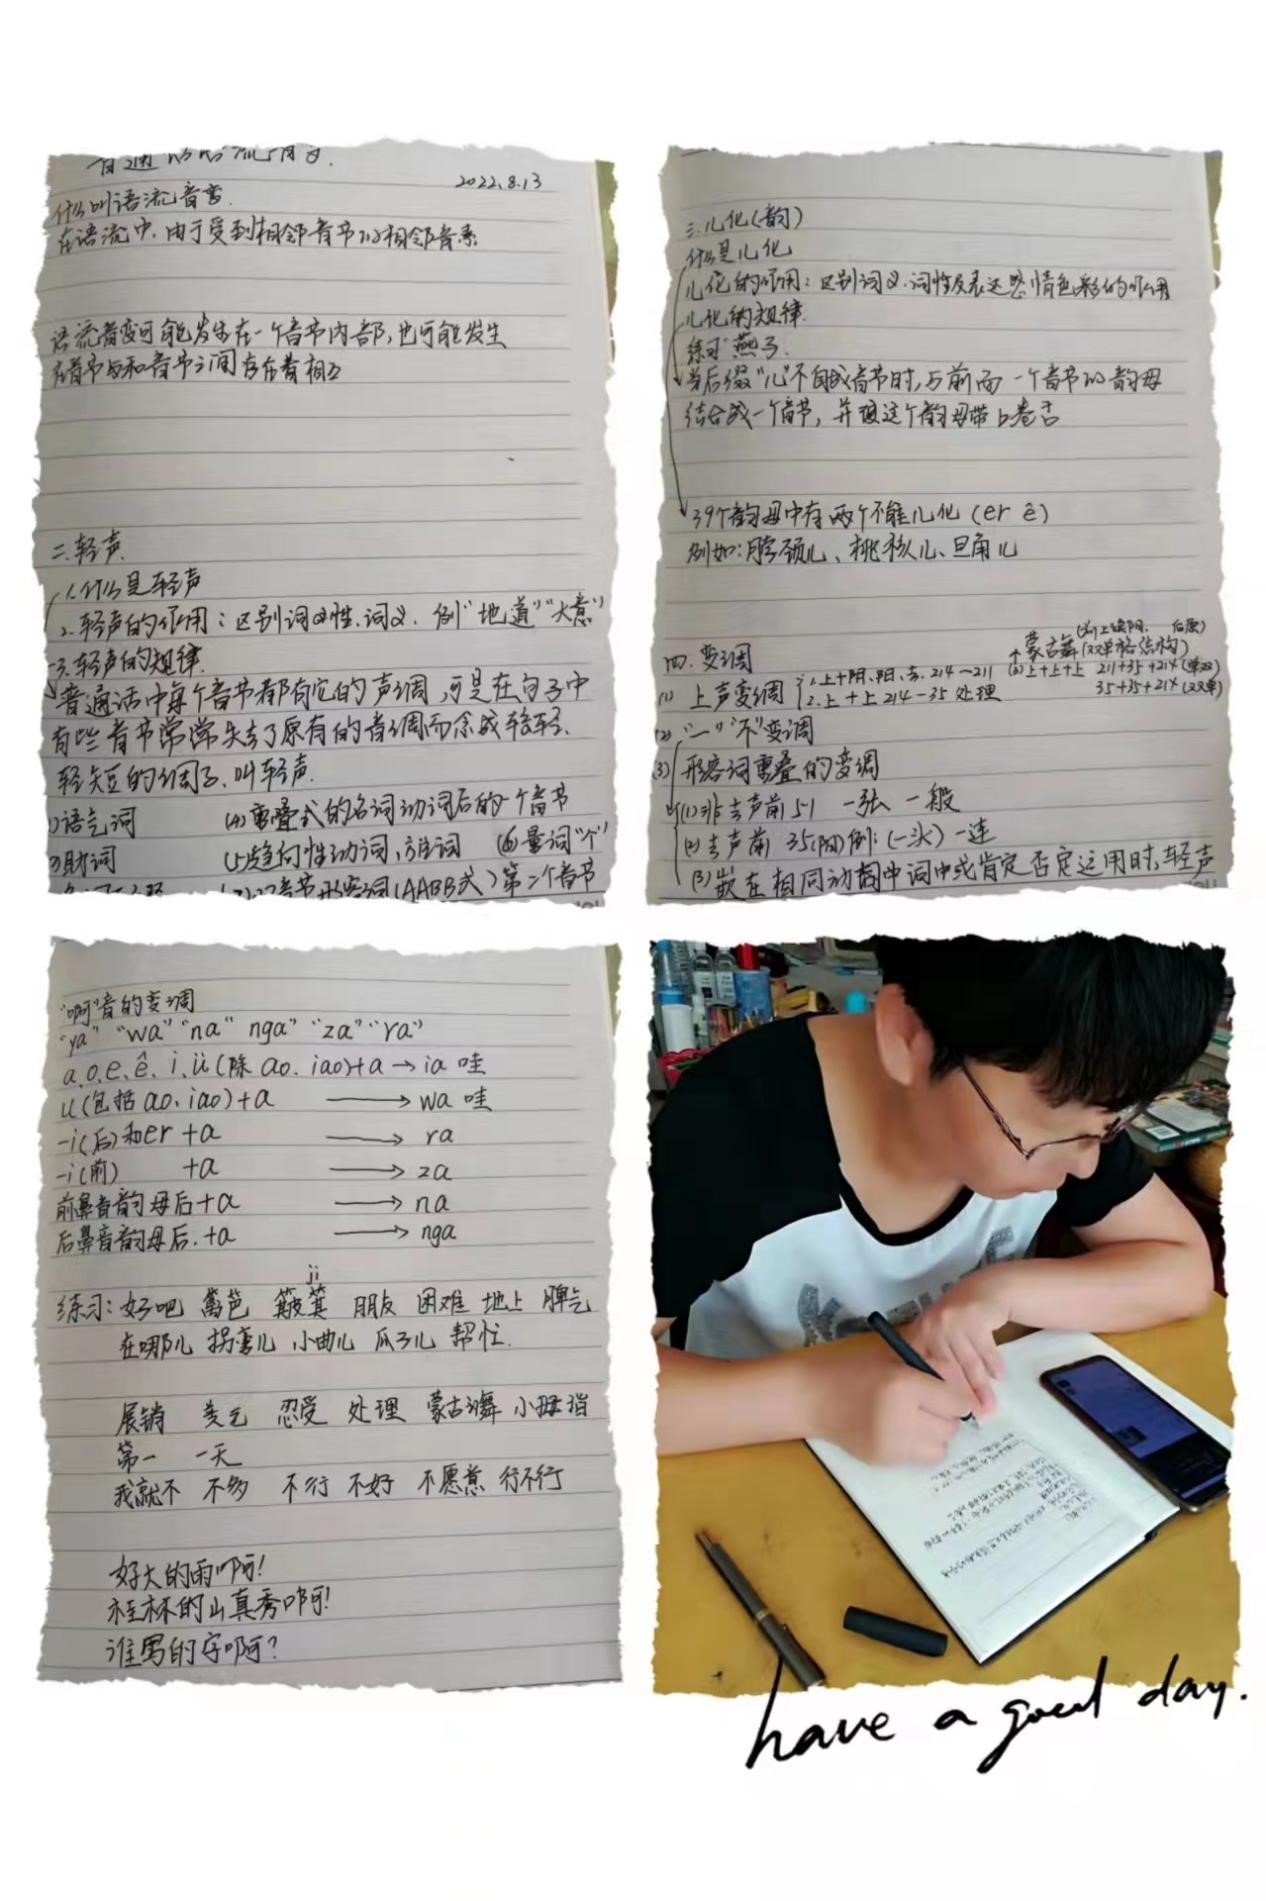 2022.8.13
什么叫语流音变.
在语流中,由于受到相邻音节的相邻音素
语流音变可能发生在一个音节内部,也可能发生
在音节与和音节之间存在着相互
二.轻声
1.什么是轻声
2.轻声的作用:区别词性.词义.例"地道""大意"
3.轻声的规律.
普通话中每个音节都有它的声调,可是在句子中
有些音节常常失去了原有的音调而念成轻
轻短的调子.叫轻声.
1)语气词 (4)重叠式的名词动词后的一个音节
(5)趋向性动词,方位词 (6)量词"个"
音节形容词(AABB式)第二个音节
三.儿化(韵)
什么是儿化
儿化的作用:区别词义.词性及表达感情色彩的作用
儿化的规律.
练习"燕子.
当后缀"儿"不自成音节时,与前面一个音节的韵母
结合成一个音节,并使这个韵母带上卷舌
39个韵母中有两个不能儿化(er ê)
例如:脖颈儿、桃核儿、旦角儿
蒙古舞(双单格结构)
四.变调 (3)上+上+上 211+35+214(单双)
(1) 上声变调 1.上+阴.阳.去.214~211
2.上+上214-35处理 35+35+214(双单)
(2)"一""不"变调
(3)形容词重叠的变调
(1)非去声前51 一张 一般
(2)去声前 35(阳)例:(一头)一连
(3)嵌在相同动词中词中或肯定否定运用时,轻声
"啊"音的变调
"ya" "wa" "na" nga" "za" "ra"
a.o.e.ê.i.ü(除ao.iao)+a→ia 哇
u(包括ao.iao)+a → wa 哇
-i(后)和er +a → ra
-i(前) +a → za
前鼻音韵母后+a → na
后鼻音韵母后.+a → nga
ji
练习:好吧 篱笆 簸箕 朋友 困难 地上 脾气
在哪儿 拐弯儿 小曲儿 瓜子儿 帮忙.
展销 美乞 忍受 处理 蒙古舞 小拇指
第一 一天
我就不 不多 不行 不好 不愿意 行不行
好大的雨啊!
桂林的山真秀啊!
谁写的字啊?
have a good day.